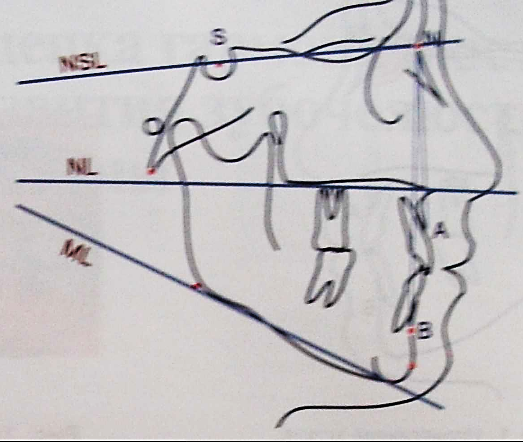 S
N
NSL
NL
A
ML
B